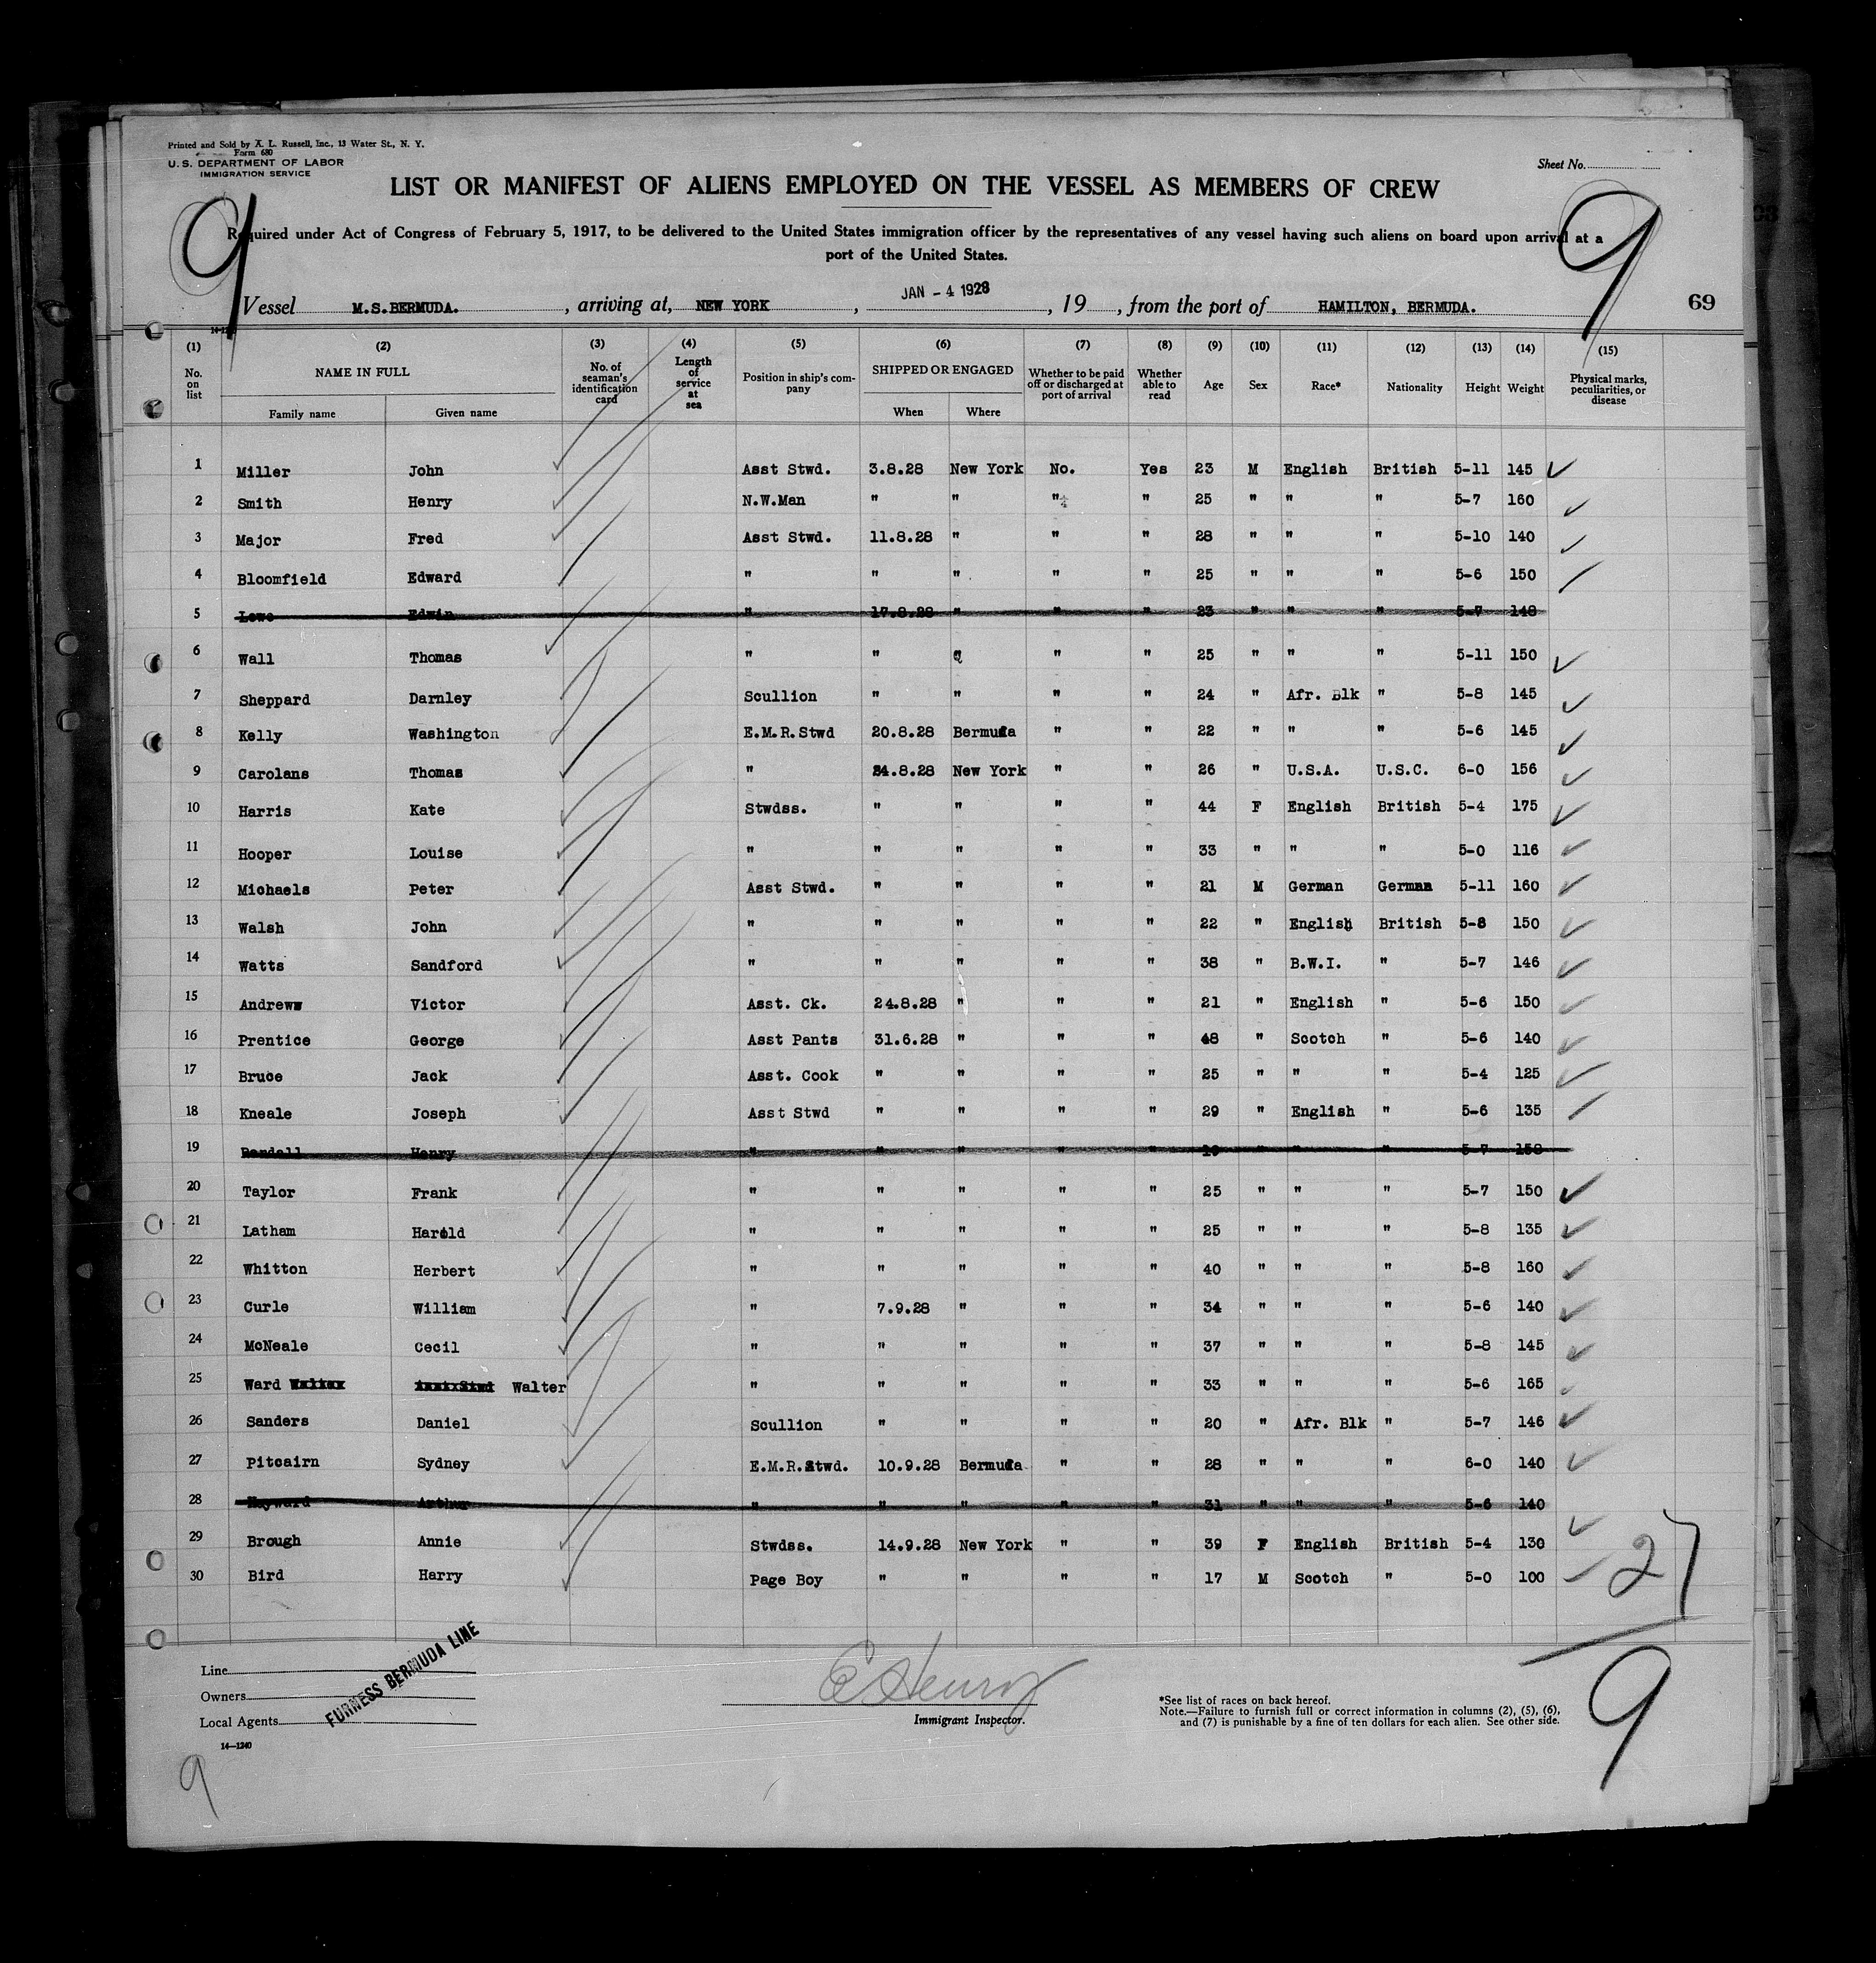 Printed and Sold by A. L. Russell, Inc., 13 Water St., N. Y.
Form 680
U. S. DEPARTMENT OF LABOR
IMMIGRATION SERVICE
Sheet No.
LIST OR MANIFEST OF ALIENS EMPLOYED ON THE VESSEL AS MEMBERS OF CREW
9 9
Required under Act of Congress of February 5, 1917, to be delivered to the United States immigration officer by the representatives of any vessel having such aliens on board upon arrival at a
port of the United States.
Vessel M.S.BERMUDA. , arriving at, NEW YORK , JAN - 4 1928 , 19 , from the port of HAMILTON, BERMUDA. 69
(1) (2) (3) (4) (5) (6) (7) (8) (9) (10) (11) (12) (13) (14) (15)
No. on list NAME IN FULL Family name Given name No. of seaman's identification card Length of service at sea Position in ship's company SHIPPED OR ENGAGED When Where Whether to be paid off or discharged at port of arrival Whether able to read Age Sex Race* Nationality Height Weight Physical marks, peculiarities, or disease
1 Miller John Asst Stwd. 3.8.28 New York No. Yes 23 M English British 5-11 145
2 Smith Henry N.W.Man " " " " 25 " " " 5-7 160
3 Major Fred Asst Stwd. 11.8.28 " " " 28 " " " 5-10 140
4 Bloomfield Edward " " " " " 25 " " " 5-6 150
5 Lowe Edwin " 17.8.28 " " " 23 " " " 5-7 148
6 Wall Thomas " " " " " 25 " " " 5-11 150
7 Sheppard Darnley Scullion " " " " 24 " Afr. Blk " 5-8 145
8 Kelly Washington E.M.R.Stwd 20.8.28 Bermuda " " 22 " " " 5-6 145
9 Carolans Thomas " 24.8.28 New York " " 26 " U.S.A. U.S.C. 6-0 156
10 Harris Kate Stwdss. " " " " 44 F English British 5-4 175
11 Hooper Louise " " " " " 33 " " " 5-0 116
12 Michaels Peter Asst Stwd. " " " " 21 M German German 5-11 160
13 Walsh John " " " " " 22 " English British 5-8 150
14 Watts Sandford " " " " " 38 " B.W.I. " 5-7 146
15 Andrews Victor Asst. Ck. 24.8.28 " " " 21 " English " 5-6 150
16 Prentice George Asst Pants 31.6.28 " " " 48 " Scotch " 5-6 140
17 Bruce Jack Asst. Cook " " " " 25 " " " 5-4 125
18 Kneale Joseph Asst Stwd " " " " 29 " English " 5-6 135
19 Randall Henry " " " " " 19 " " " 5-7 158
20 Taylor Frank " " " " " 25 " " " 5-7 150
21 Latham Harold " " " " " 25 " " " 5-8 135
22 Whitton Herbert " " " " " 40 " " " 5-8 160
23 Curle William " 7.9.28 " " " 34 " " " 5-6 140
24 McNeale Cecil " " " " " 37 " " " 5-8 145
25 Ward Walter " " " " " 33 " " " 5-6 165
26 Sanders Daniel Scullion " " " " 20 " Afr. Blk " 5-7 146
27 Pitcairn Sydney E.M.R.Stwd. 10.9.28 Bermuda " " 28 " " " 6-0 140
28 Hayward Arthur " " " " " 31 " " " 5-6 140
29 Brough Annie Stwdss. 14.9.28 New York " " 39 F English British 5-4 130
30 Bird Harry Page Boy " " " " 17 M Scotch " 5-0 100
27
9
Line
Owners
Local Agents
FURNESS BERMUDA LINE
E Henry
Immigrant Inspector.
*See list of races on back hereof.
Note.—Failure to furnish full or correct information in columns (2), (5), (6),
and (7) is punishable by a fine of ten dollars for each alien. See other side.
14—1240
9